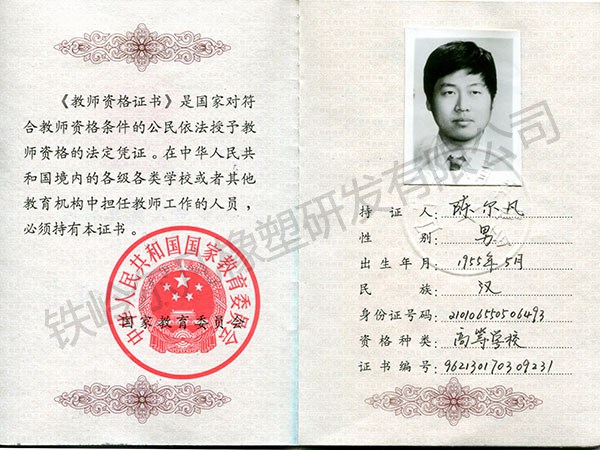 《教师资格证书》是国家对符
合教师资格条件的公民依法授予教
师资格的法定凭证。在中华人民共
和国境内的各级各类学校或者其他
教育机构中担任教师工作的人员,
必须持有本证书。
中华人民共和国国家教育委员会
国家教育委员会
持证人:陈尔凡
性别:男
出生年月:1955年5月
民族:汉
身份证号码:210106550506493
资格种类:高等学校
证书编号:962130170309231
铁岭 橡塑研发有限公司